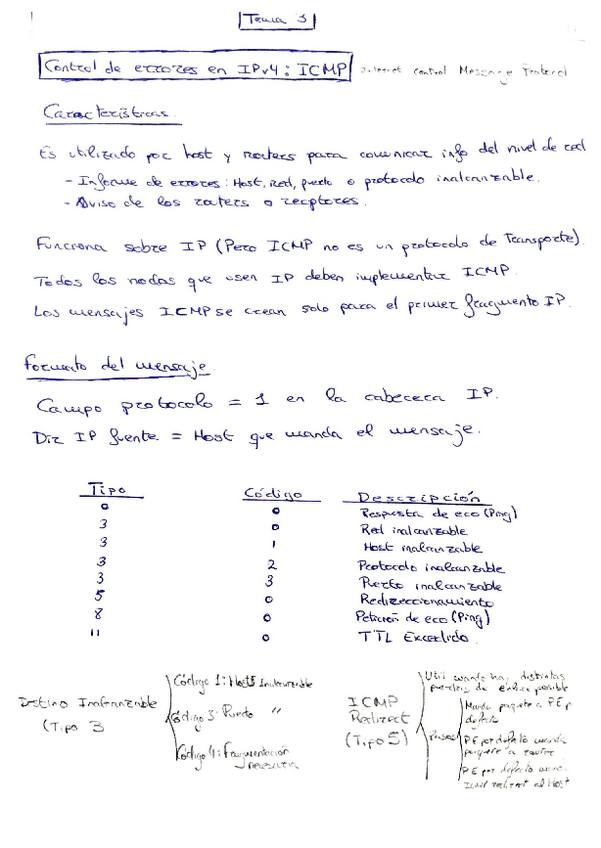 Tema 3
Control de errores en IPv4: ICMP Internet Control Message Protocol
Características
Es utilizado por host y routers para comunicar info del nivel de red
- Informe de errores: Host, red, puerto o protocolo inalcanzable.
- Aviso de los routers o receptores.
Funciona sobre IP (Pero ICMP no es un protocolo de Transporte).
Todos los nodos que usen IP deben implementar ICMP.
Los mensajes ICMP se crean solo para el primer fragmento IP.
Formato del mensaje.
Campo protocolo = 1 en la cabecera IP.
Dir IP fuente = Host que manda el mensaje.
Tipo Código Descripción
0 0 Respuesta de eco (Ping)
3 0 Red inalcanzable
3 1 Host inalcanzable
3 2 Protocolo inalcanzable
3 3 Puerto inalcanzable
5 0 Redireccionamiento
8 0 Petición de eco (Ping)
11 0 TTL Excedido.
Destino Inalcanzable
(Tipo 3
Código 1: Host Inalcanzable
Código 3: Puerto "
Código 4: Fragmentación
necesaria
ICMP
Redirect
(Tipo 5)
Util cuando hay distintas
de enlace posible
Pasos
Manda paquete a PE p
defecto
PE por defecto manda
paquete a router
PE por defecto
ICMP redirect al Host